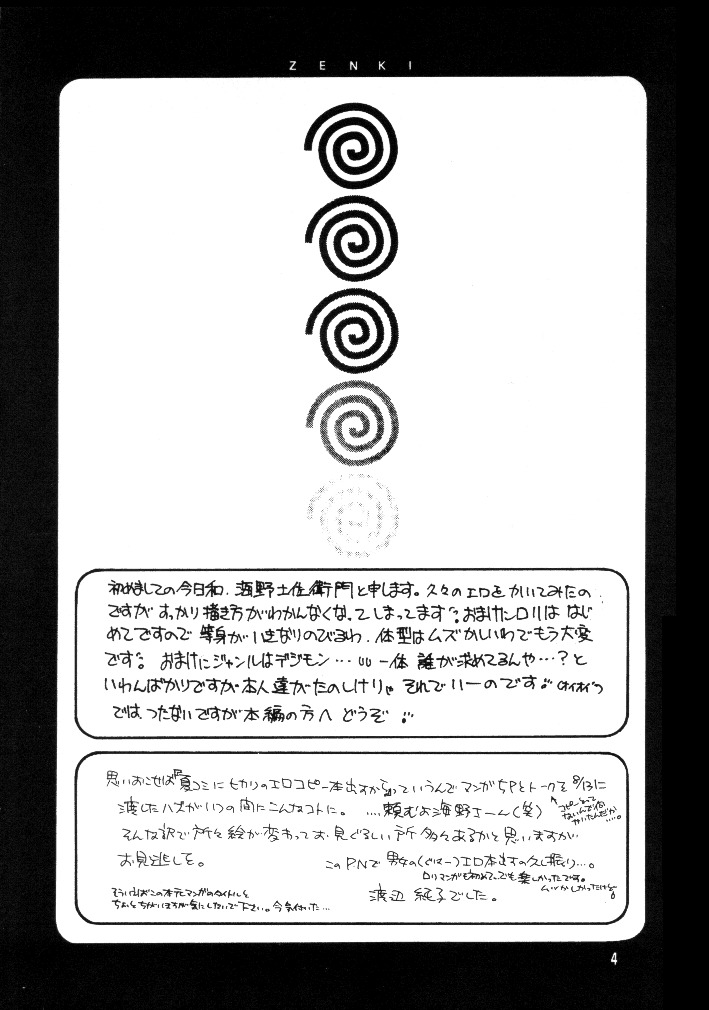 ZENKI
初めましての今日和、海野土佐衛門と申します。久々のエロをかいてみたの
ですがすっかり描き方がわかんなくなってしまってます。おまけにロリははじ
めてですので等身がいきなりのびるわ、体型はムズかしいわでもう大変
です。おまけにジャンルはデジモン…一体誰が求めてるんや…?と
いわんばかりですが本人達がたのしけりゃそれでいーのです。(オイオイ)
ではつたないですが本編の方へどうぞ
思いおこせば『夏コミにヒカリのエロコピー本出すから』っていうんでマンガ5Pとトークを8/13に
渡したハズがいつの間にこんなコトに。....頼むよ海野さーん(笑)
コピーって
ないんで何
やいたんだか
....。
そんな訳で所々絵が変わってお見ぐるしい所多々あるかと思いますが
お見逃しを。
このPNで男女の エロ本出すの久し振り...。
ロリマンガも初めてでも楽しかったです。
ムツかしかったけど
渡辺純子でした。
そういえばこの本 マンガのタイトルと
ちょっとちがいますが気にしないで下さい。今気付いた...
4